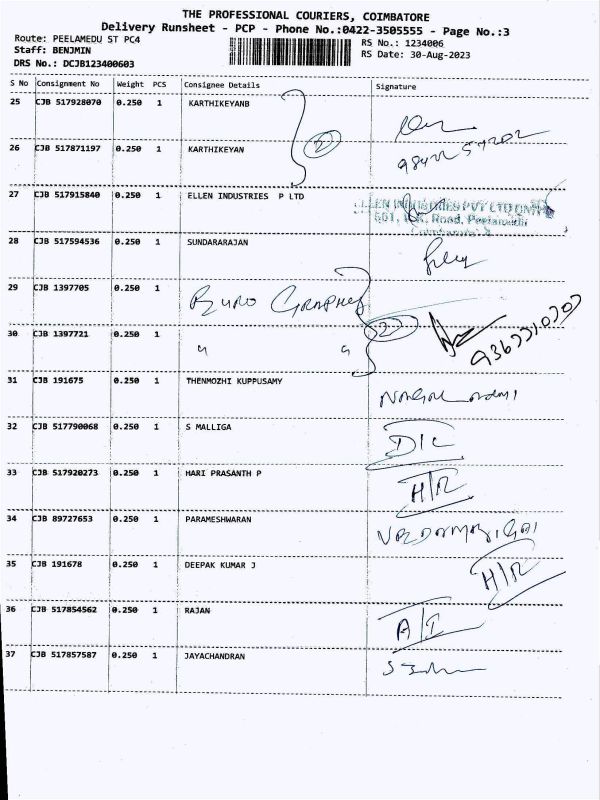 THE PROFESSIONAL COURIERS, COIMBATORE
Delivery Runsheet - PCP - Phone No.:0422-3505555 - Page No.:3
Route: PEELAMEDU ST PC4
RS No.: 1234006
Staff: BENJMIN
RS Date: 30-Aug-2023
DRS No.: DCJB123400603
S No Consignment No Weight PCS Consignee Details Signature
25 CJB 517928070 0.250 1 KARTHIKEYANB
2
26 CJB 517871197 0.250 1 KARTHIKEYAN
27 CJB 517915840 0.250 1 ELLEN INDUSTRIES P LTD
ELLEN INDUSTRIES PVT LTD
Road, Peelamedu
28 CJB 517594536 0.250 1 SUNDARARAJAN
29 CJB 1397705 0.250 1 BUNO GRAPHICS
2
30 CJB 1397721 0.250 1 " "
31 CJB 191675 0.250 1 THENMOZHI KUPPUSAMY
32 CJB 517790068 0.250 1 S MALLIGA D/L
33 CJB 517920273 0.250 1 HARI PRASANTH P H/R
34 CJB 89727653 0.250 1 PARAMESHWARAN
35 CJB 191678 0.250 1 DEEPAK KUMAR J H/R
36 CJB 517854562 0.250 1 RAJAN A/T
37 CJB 517857587 0.250 1 JAYACHANDRAN